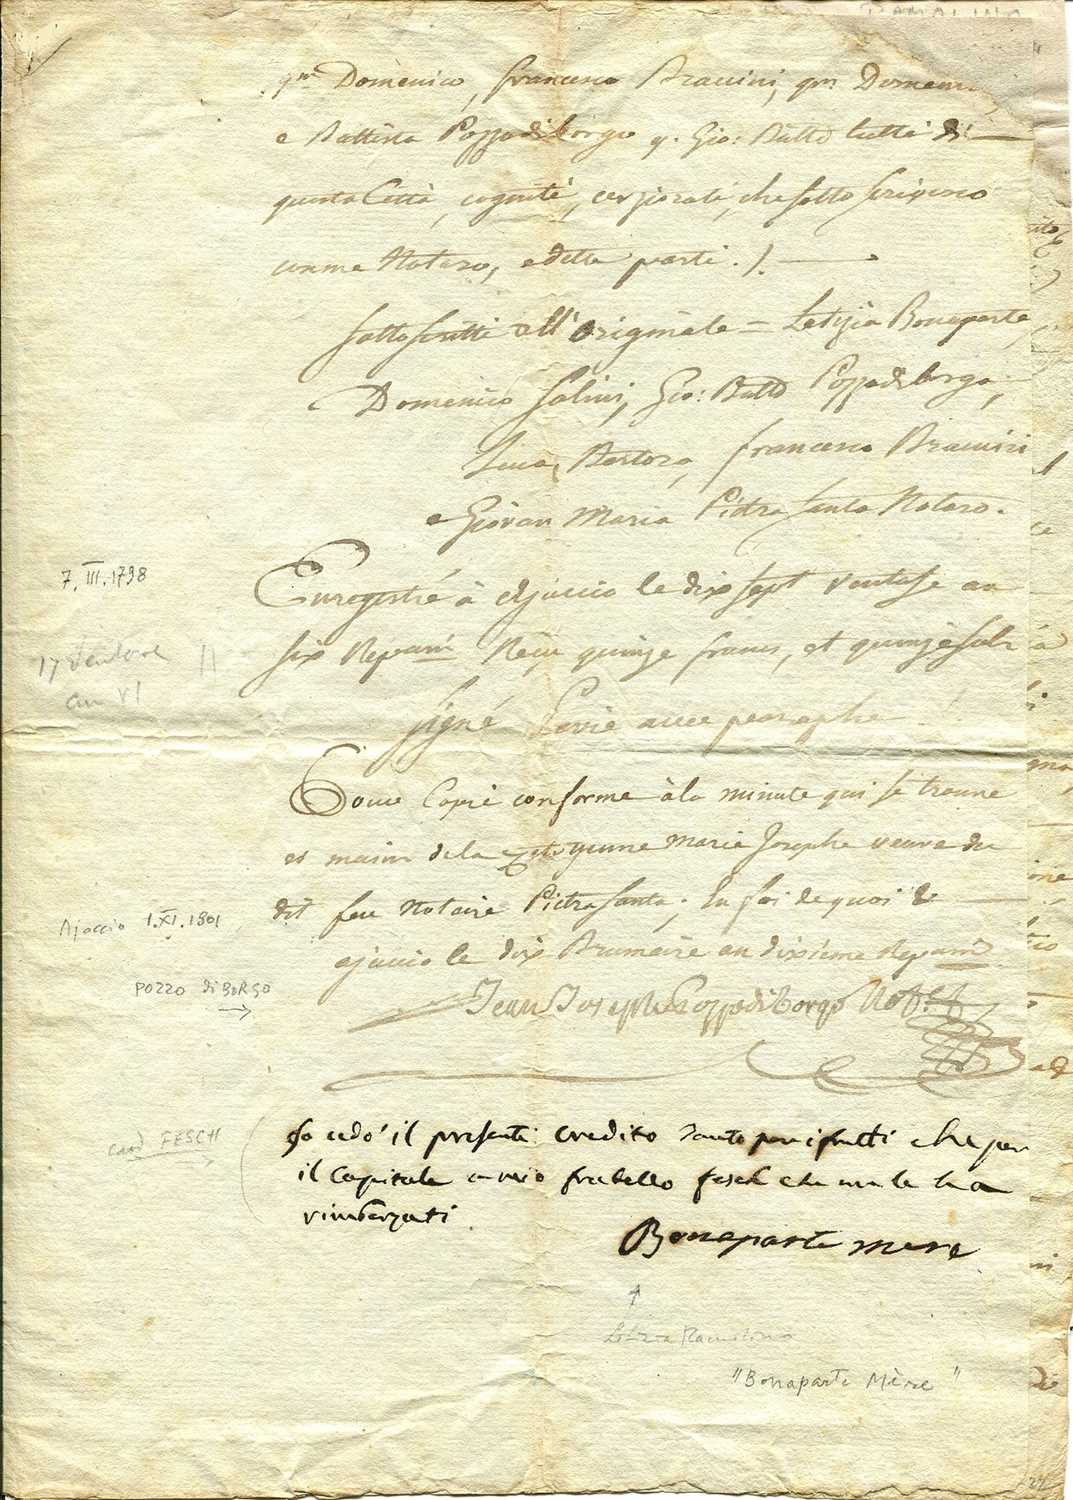 RAMOLINO
qm Domenico, francesco Braccini, qm Domenico
e Battista Pozzodiborgo q. Gio: Batta tutti di
questa Città, cogniti, che sotto scrivono
con me Notaro, e dette parti ./.
sottoscritti all'originale = Letizia Bonaparte,
Domenico Solini, Gio: Batta Pozzodiborgo,
Luca Bertora, francesco Braccini
e Giovan Maria Pietra Santa Notaro.
7. III. 1798
Enregistré à ajaccio le dix sept ventose an
17 Ventose
six Repam Reçu quinze francs, et quinze sols
an VI
signé avec paraphe
Pour Copie conforme à la minute qui se trouve
es mains de la Citoyenne Marie Josephe veuve du
dit feu Notaire Pietra Santa; En foi de quoi
Ajaccio 1.XI.1801
ajaccio le dix Brumaire an dixième Repam
POZZO di BORGO
Jean Joseph Pozzodiborgo Not.
card FESCH
Io cedo il presenti credito tanto per i frutti che per
il Capitale a mio fratello fesch che me le ha
rimborzati
Bonaparte mere
Letizia Ramolino
"Bonaparte Mère"